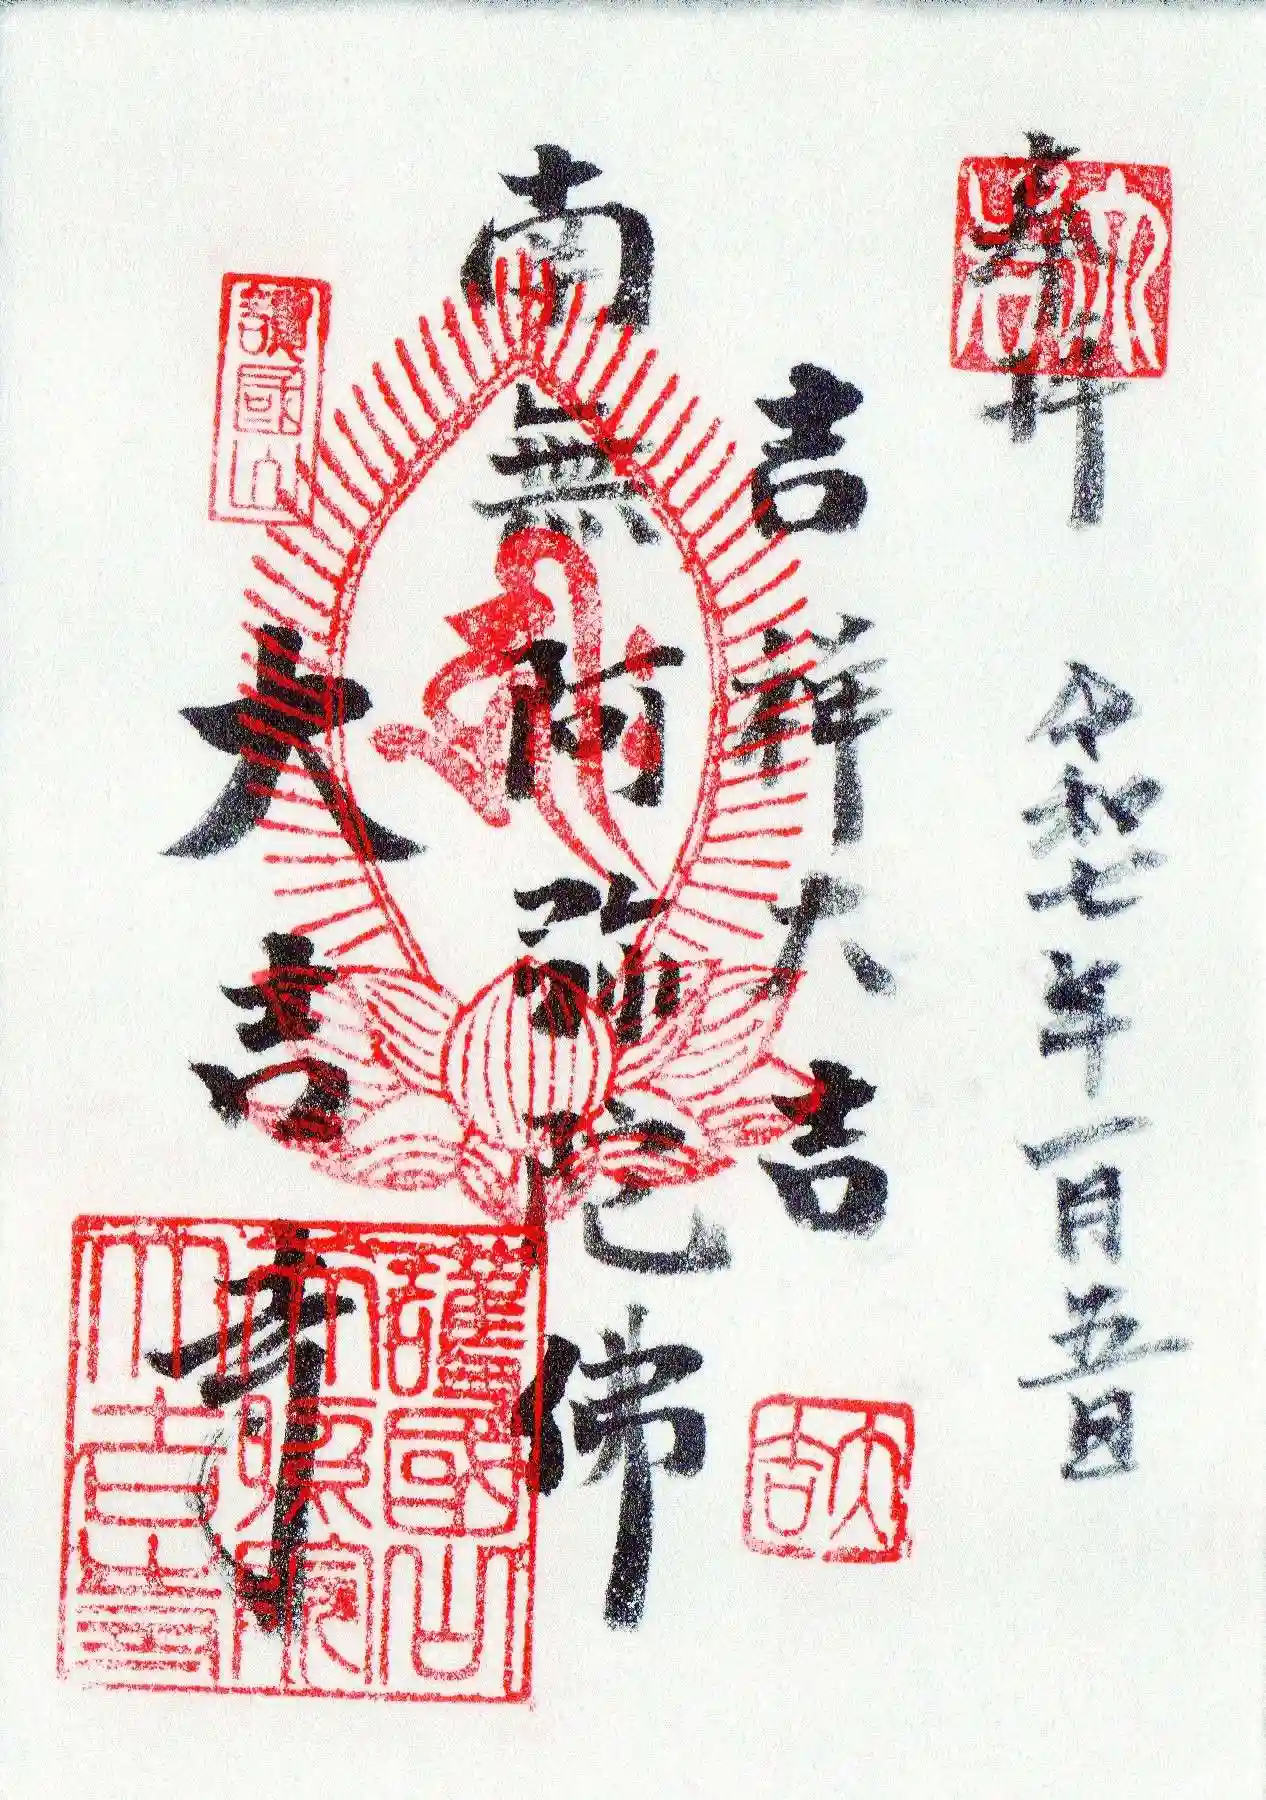 奉拝 令和七年一月五日
吉祥大吉
大吉
南無阿弥陀佛
護國山
大吉寺
護國山
大吉寺